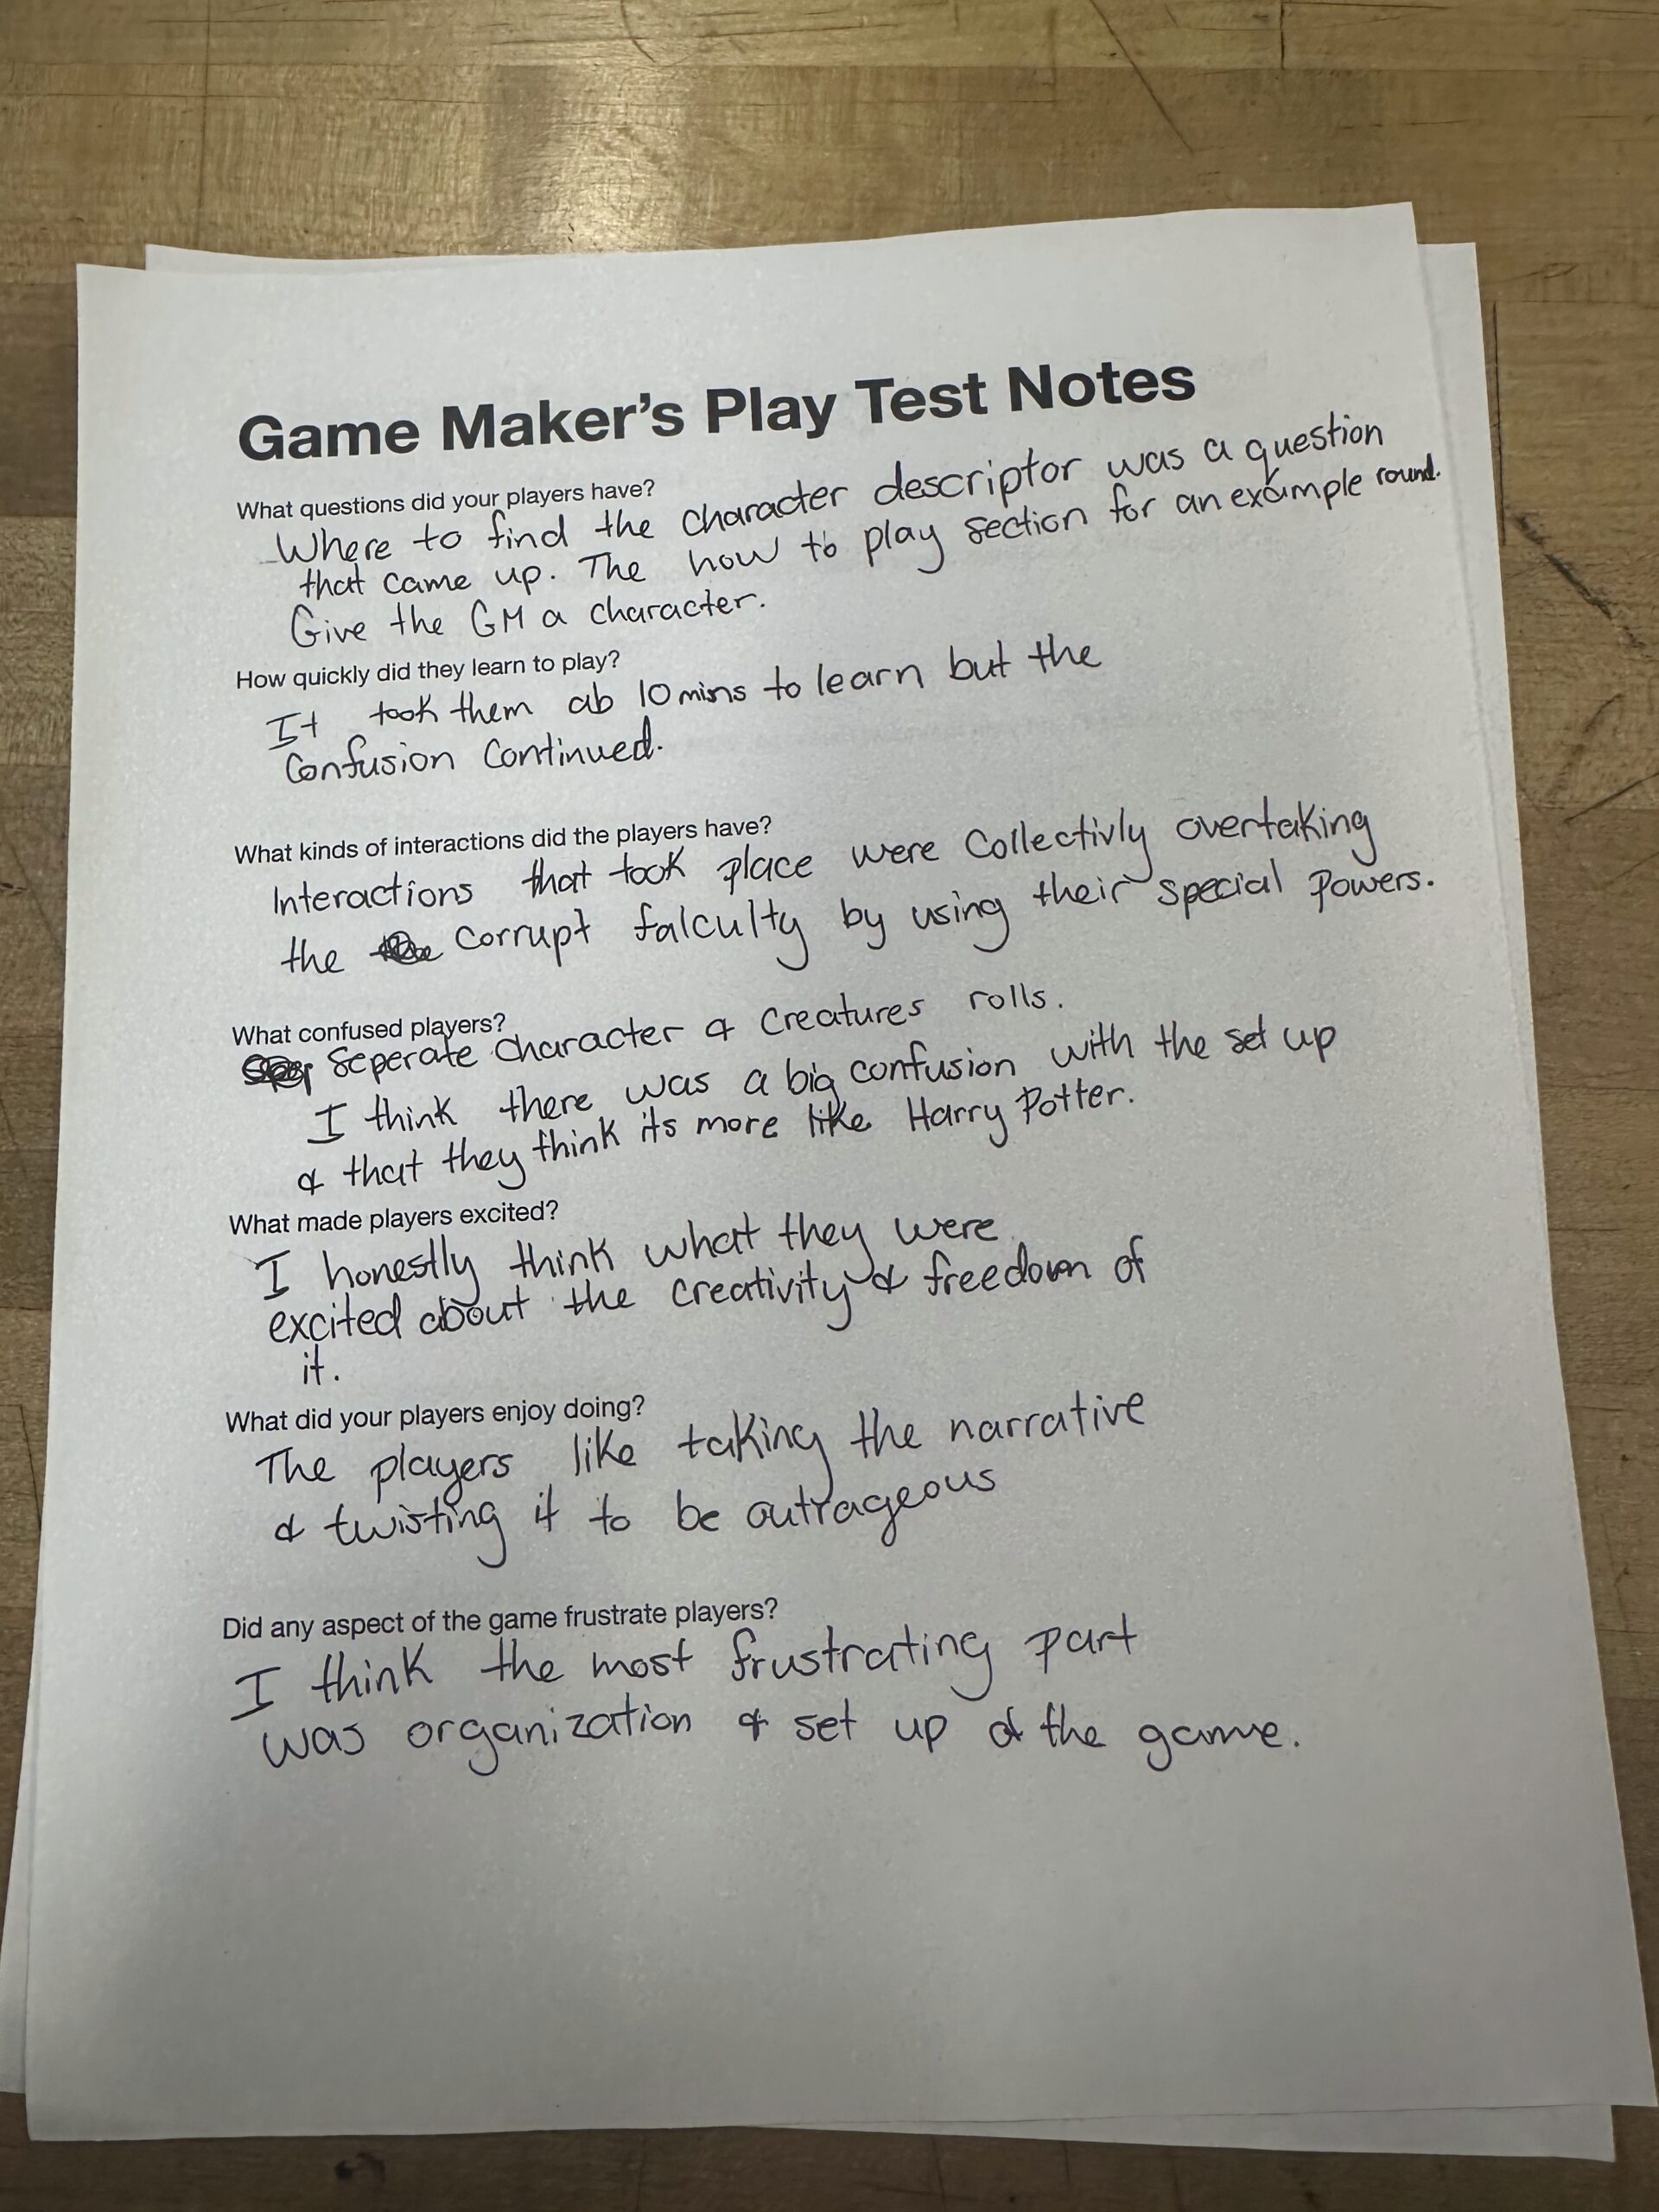 Game Maker's Play Test Notes
What questions did your players have?
Where to find the character descriptor was a question
that came up. The how to play section for an example round.
Give the GM a character.
How quickly did they learn to play?
It took them ab 10 mins to learn but the
Confusion Continued.
What kinds of interactions did the players have?
Interactions that took place were Collectivly overtaking
the corrupt falculty by using their special powers.
What confused players?
Seperate Character & Creatures rolls.
I think there was a big confusion with the set up
& that they think its more like Harry Potter.
What made players excited?
I honestly think what they were
excited about the creativity & freedom of
it.
What did your players enjoy doing?
The players like taking the narrative
& twisting it to be outrageous
Did any aspect of the game frustrate players?
I think the most frustrating part
was organization & set up of the game.